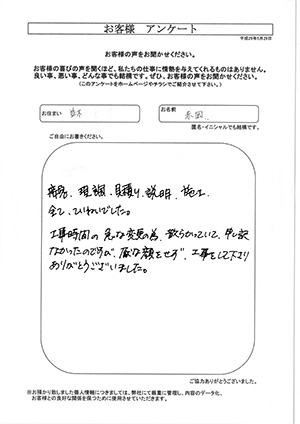 お客様 アンケート
平成29年5月29日
お客様の声をお聞かせください。
お客様の喜びの声を聞くほど、私たちの仕事に情熱を与えてくれるものはありません。
良い事、悪い事、どんな事でも結構です。ぜひ、お客様の声をお聞かせください。
(このアンケートをホームページやチラシでご紹介させて下さい。)
お住まい
お名前
匿名・イニシャルでも結構です。
ご自由にお書きください。
商品、現調、見積り、説明、施工
全て、ていねいでした。
工事時間の急な変更の為、散らかっていて、申し訳
なかったのですが、嫌な顔をせず、工事をして下さり
ありがとうございました。
ご協力ありがとうございました。
※お預かり致しました個人情報につきましては、弊社にて厳重に管理し、内容のデータ化、
お客様との良好な関係を保つために使用させていただきます。